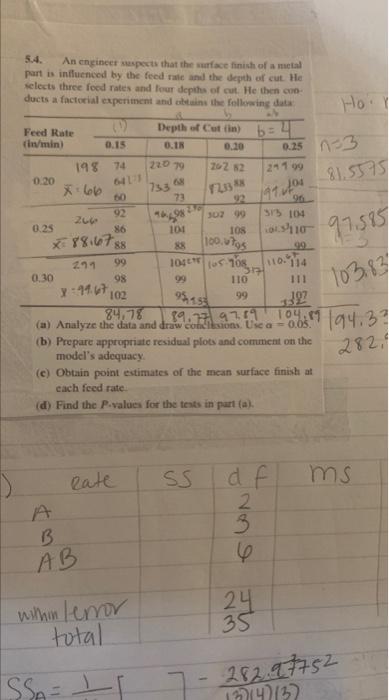 5.4. An engineer suspects that the surface finish of a metal
part is influenced by the feed rate and the depth of cut. He
selects three feed rates and four depths of cut. He then con-
ducts a factorial experiment and obtains the following data:
Ho:
Depth of Cut (in) b = 4
Feed Rate
(in/min) 0.15 0.18 0.20 0.25 n=3
198 74 220 79 262 82 299 99 81.5575
0.20 64 68 88 104
x̄ = 66 60 73 92 96
266 92 98 302 99 313 104 97.585
0.25 86 104 108 110
x̄ = 88.67 88 88 95 99
299 99 104 108 110.67 114 103.83
0.30 98 99 110 111
x̄ = 99.67 102 95 99 107
84.78 89.77 97.89 104.89 194.33
(a) Analyze the data and draw conclusions. Use α = 0.05.
(b) Prepare appropriate residual plots and comment on the 282.
model's adequacy.
(c) Obtain point estimates of the mean surface finish at
each feed rate.
(d) Find the P-values for the tests in part (a).
) rate SS df ms
A 2
B 3
AB 6
within/error 24
total 35
SSA = 1 [ ] - 282.97752
(3)(4)(3)